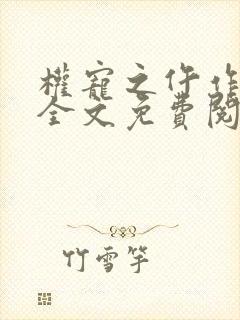 權寵之仵作
全文免費閱
竹雪竽